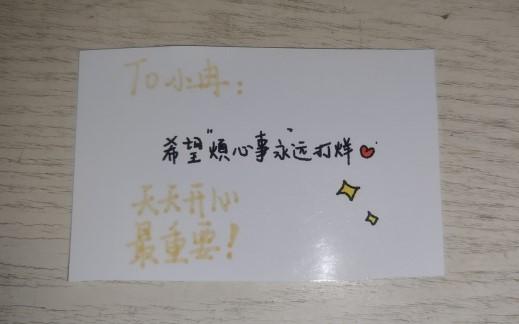 To小冉：
希望"烦心事"永远打烊
天天开心
最重要！